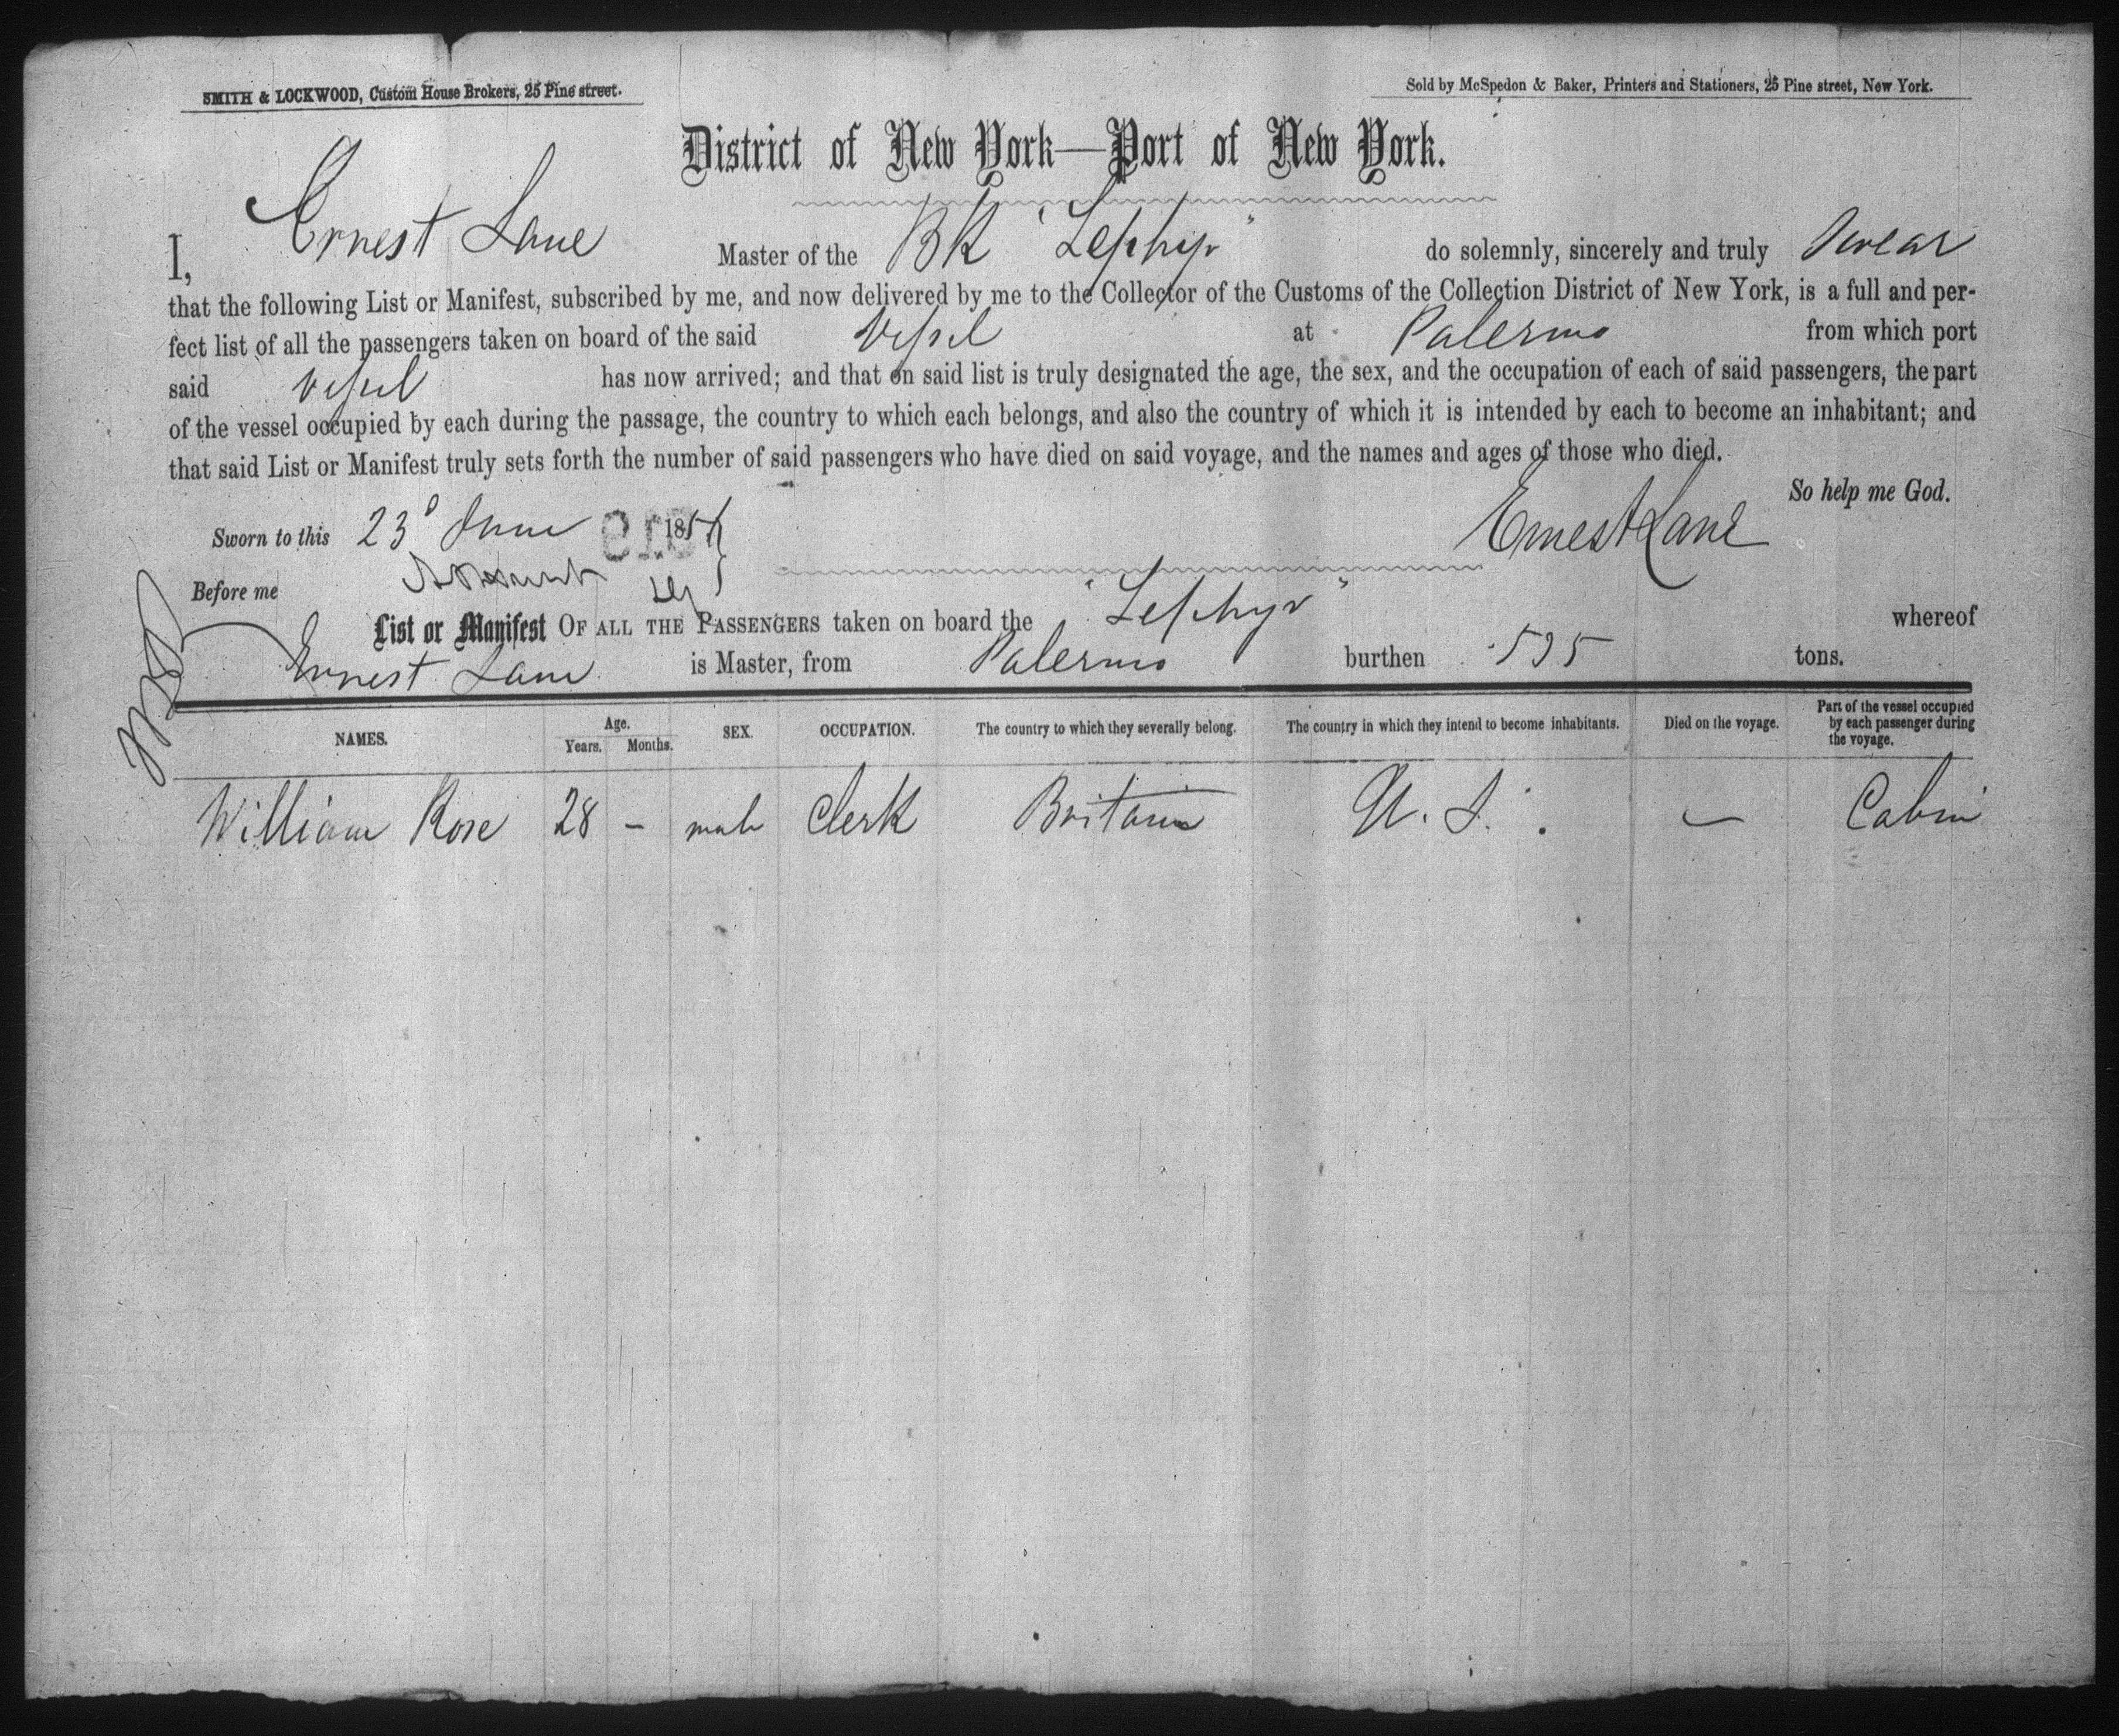 SMITH & LOCKWOOD, Custom House Brokers, 25 Pine street.
Sold by McSpedon & Baker, Printers and Stationers, 25 Pine street, New York.
District of New York—Port of New York.
I, Ernest Lane Master of the BK "Zephyr" do solemnly, sincerely and truly Swear
that the following List or Manifest, subscribed by me, and now delivered by me to the Collector of the Customs of the Collection District of New York, is a full and per-
fect list of all the passengers taken on board of the said Vessel at Palermo from which port
said Vessel has now arrived; and that on said list is truly designated the age, the sex, and the occupation of each of said passengers, the part
of the vessel occupied by each during the passage, the country to which each belongs, and also the country of which it is intended by each to become an inhabitant; and
that said List or Manifest truly sets forth the number of said passengers who have died on said voyage, and the names and ages of those who died.
So help me God.
Sworn to this 23d June 185 Ernest Lane
Before me
List or Manifest OF ALL THE PASSENGERS taken on board the "Zephyr" whereof
Ernest Lane is Master, from Palermo burthen 535 tons.
NAMES. Age. Years. Months. SEX. OCCUPATION. The country to which they severally belong. The country in which they intend to become inhabitants. Died on the voyage. Part of the vessel occupied by each passenger during the voyage.
William Rose 28 – male Clerk Britain U.S. – Cabin